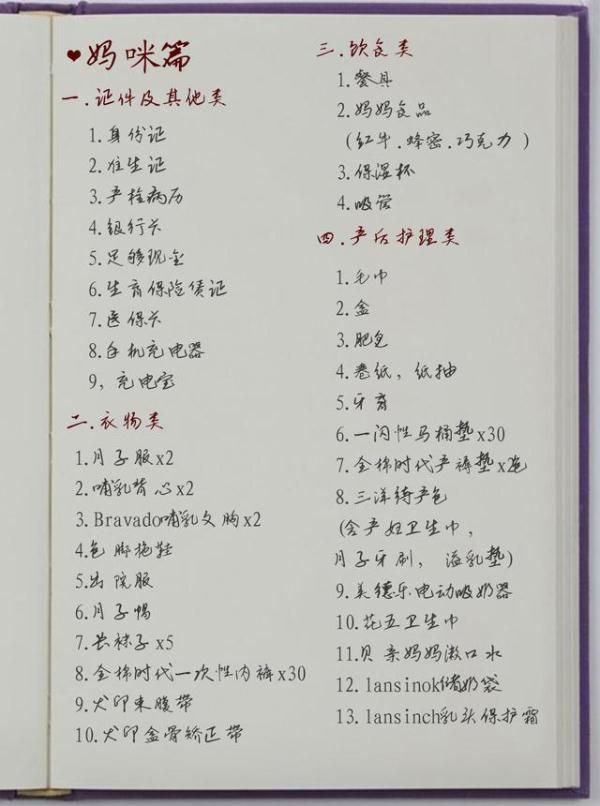 ❤妈咪篇
一.证件及其他类
1.身份证
2.准生证
3.产检病历
4.银行卡
5.足够现金
6.生育保险凭证
7.医保卡
8.手机充电器
9,充电宝
二.衣物类
1.月子服x2
2.哺乳背心x2
3.Bravado哺乳文胸x2
4.包脚拖鞋
5.出院服
6.月子帽
7.长袜子x5
8.全棉时代一次性内裤x30
9.犬印束腹带
10.犬印盆骨矫正带
三.饮食类
1.餐具
2.妈妈食品
(红牛.蜂蜜.巧克力)
3.保湿杯
4.吸管
四.产后护理类
1.毛巾
2.盆
3.肥皂
4.卷纸,纸抽
5.牙膏
6.一闪性马桶垫x30
7.全棉时代产褥垫x2包
8.三洋待产包
(含产妇卫生巾,
月子牙刷,溢乳垫)
9.美德乐电动吸奶器
10.花王卫生巾
11.贝亲妈妈漱口水
12.lansinok储奶袋
13.lansinch乳头保护霜